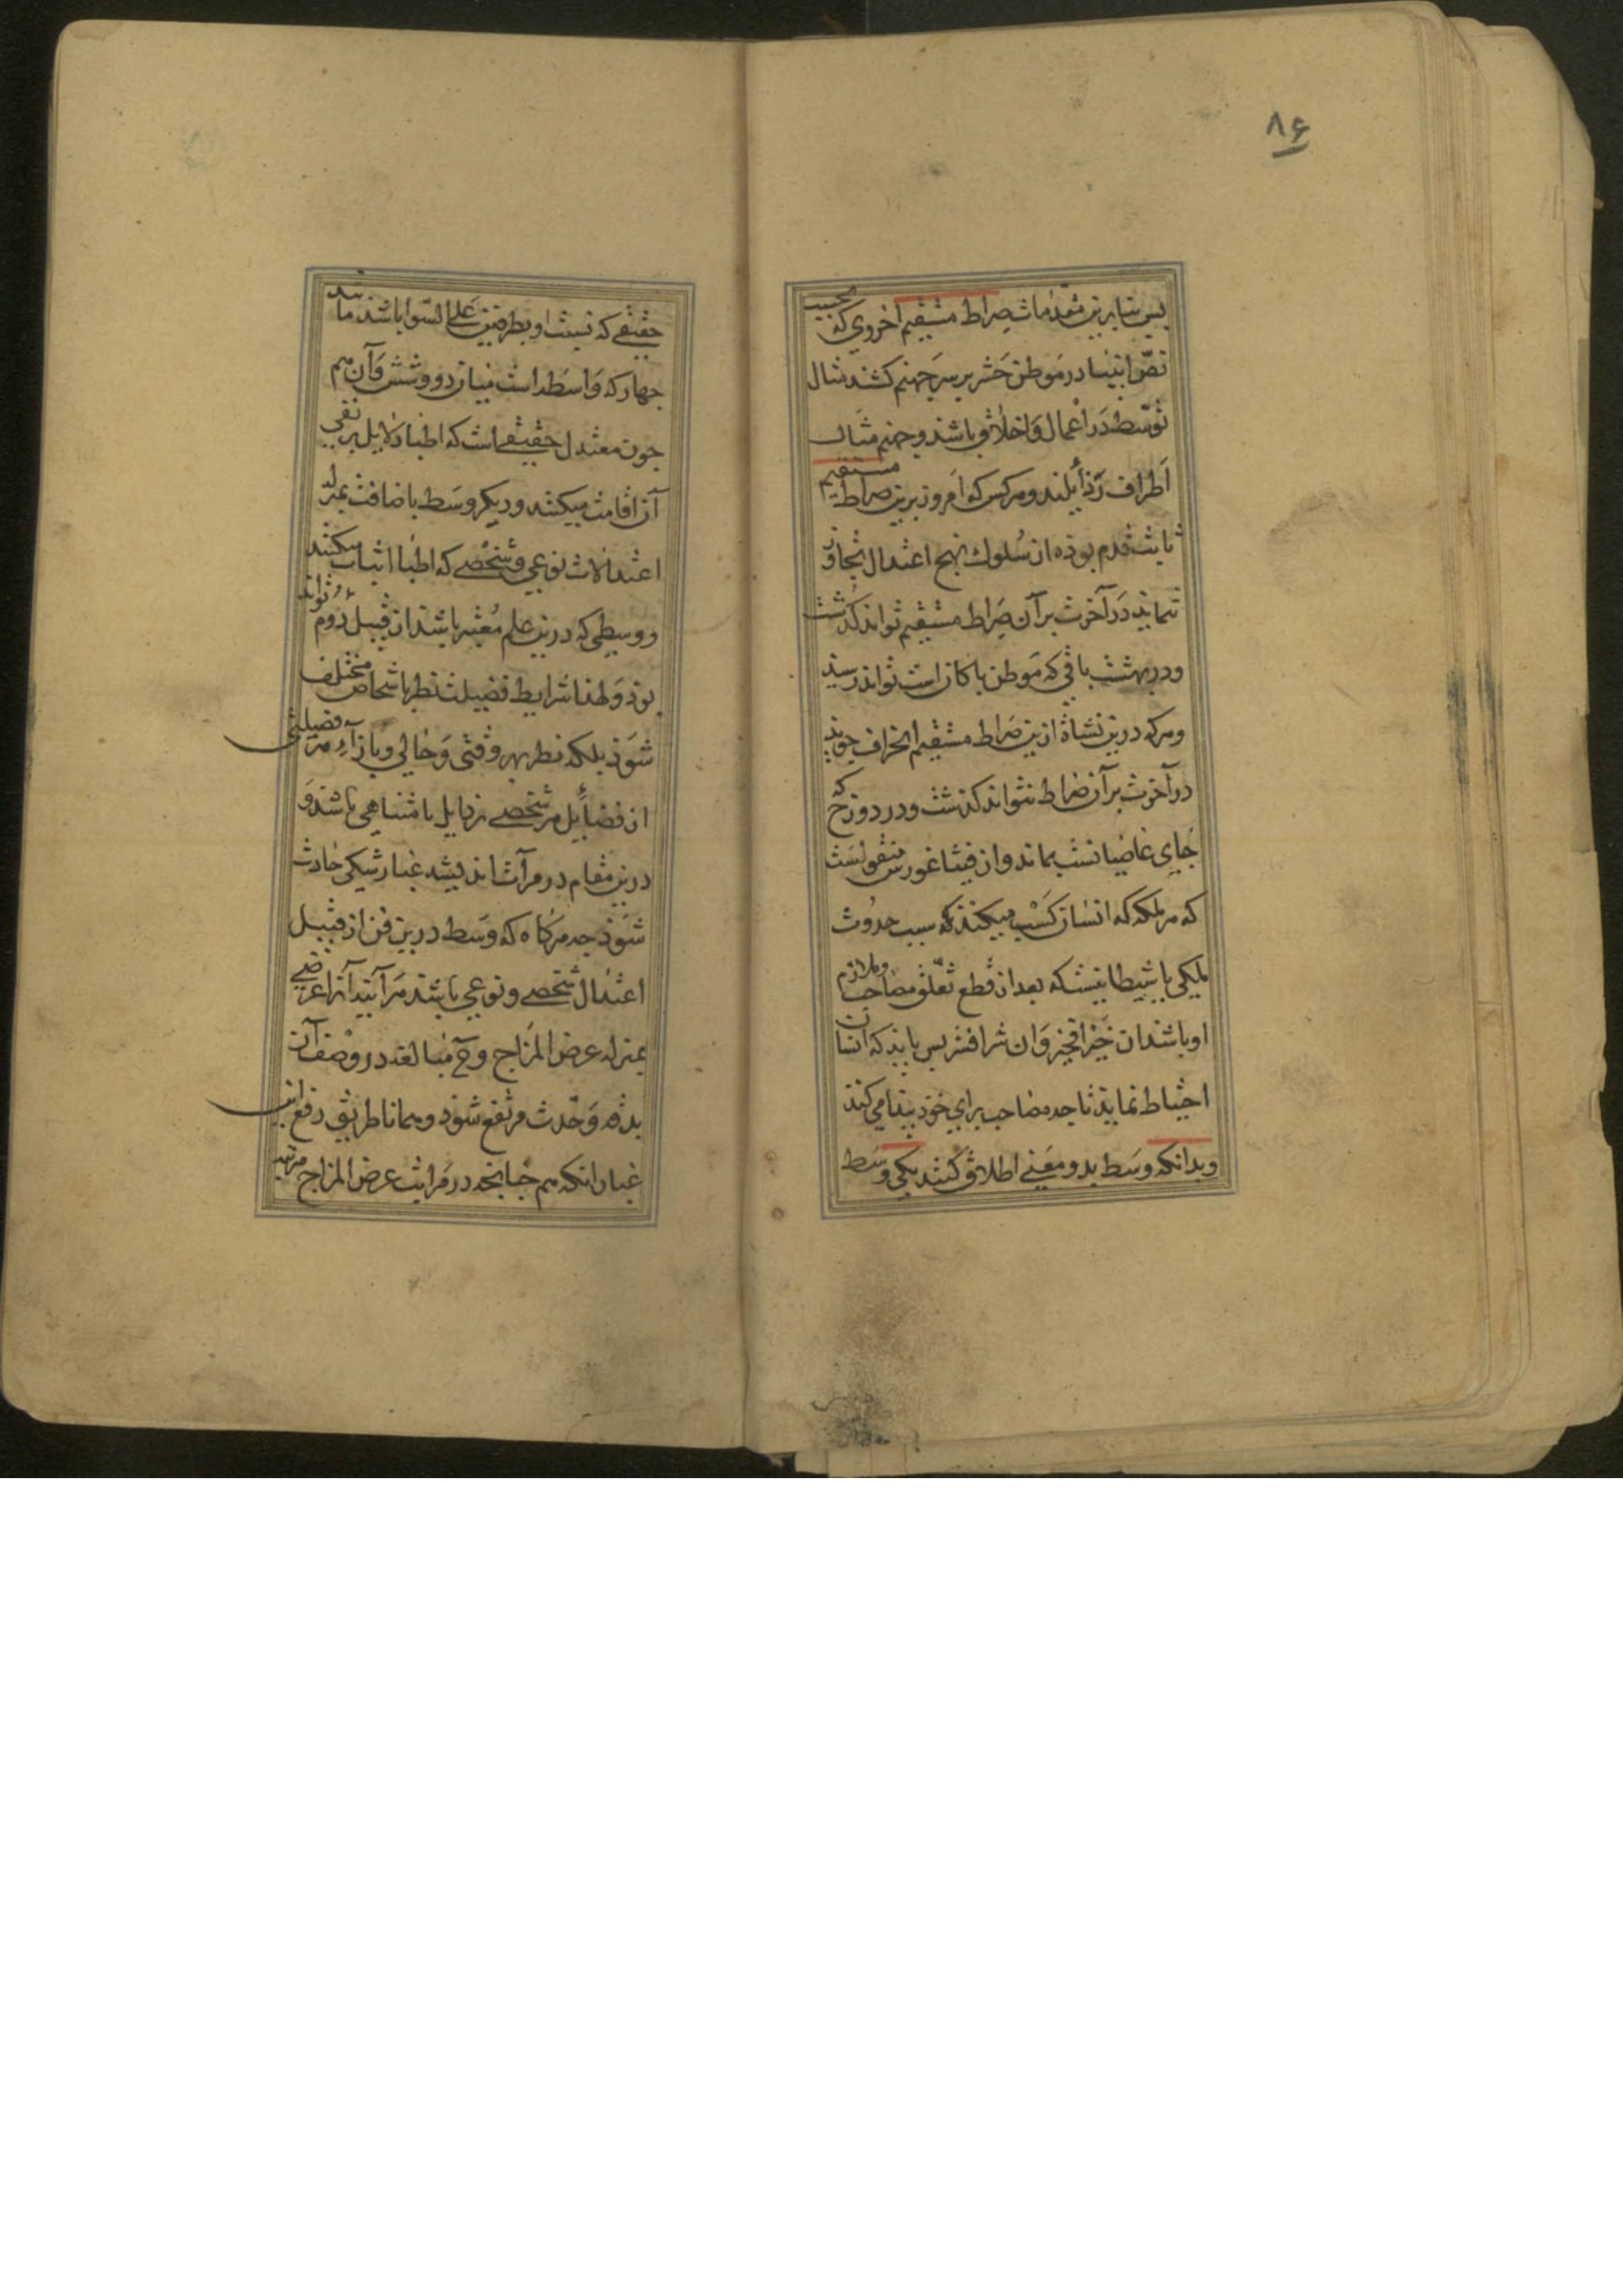 ۸۶
پس بنابرین مقدمات صراط مستقیم اخروی که بحسب
نص انبیا در موطن حشر بر سر جهنم کشند مثال
توسط در اعمال و اخلاق باشد و جهنم مثال
اطراف رذایلند و هرکس که امروز برین صراط مستقیم
ثابت قدم بوده از سلوک نهج اعتدال تجاوز
ننماید در آخرت بر آن صراط مستقیم تواند گذشت
و در بهشت باقی که موطن پاکان است تواند رسید
و هرکه درین نشاة ازین صراط مستقیم انحراف جوید
در آخرت بر آن صراط نتواند گذشت و در دوزخ که
جای عاصیانست بماند و از فیثاغورس منقولست
که هر ملکه که انسان کسب میکند که سبب حدوث
ملکی یا شیطانیست که بعد از قطع تعلق مصاحب و ملازم
او باشد ان خیرا فخیر و ان شرا فشر پس باید که انسان
احتیاط نماید تا چه مصاحب برای خود پیدا می کند
و بدانکه وسط بدو معنی اطلاق کنند یکی وسط
حقیقی که نسبت او بطرفین علی السوا باشد مانند
چهار که واسطه است میان دو و شش و آن هم
چون معتدل حقیقی است که اطبا دلایل بر نفی
آن اقامت میکنند و دیگر وسط باضافت بمنزله
اعتدالات نوعی و شخصی که اطبا اثبات میکنند
و وسطی که درین علم معتبر باشد از قبیل دوم تواند
بود و لهذا شرایط فضیلت نظر باشخاص مختلف
شود بلکه نظر بهر وقتی و حالی و بازآء هر فضیلتی
از فضایل هر شخصی رذایل نامتناهی باشد و
درین مقام در مرآت اندیشه غبار شکی حادث
شود چه هرگاه که وسط درین فن از قبیل
اعتدال شخصی و نوعی باشد هر آینه آنرا عرضی
بمنزله عرض المزاج و ح مبالغه در وصف آن
بدقه و حدت مرتفع شود و همانا طریق رفع این
غبار انکه هم چنانچه در مراتب عرض المزاج مرتبه